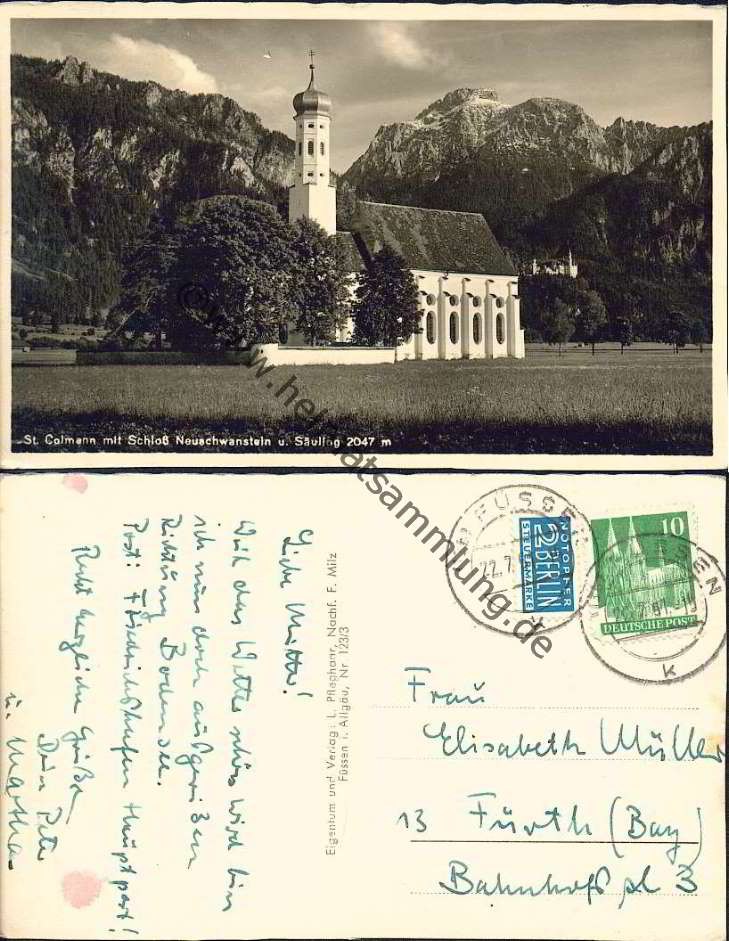 St. Colmann mit Schloß Neuschwanstein u. Säuling 2047 m
© www.heimatsammlung.de
FÜSSEN
22.7.
NOTOPFER
2 BERLIN
STEUERMARKE
10
DEUTSCHE POST
k
Liebe Mutter!
Weil das Wetter schön wird bin
ich nun doch ausgerissen
Richtung Bodensee.
Post: Friedrichshafen Hauptpost!
Recht herzliche Grüße
Dein Peter
u. Martha
Eigentum und Verlag: L. Pfleghaar, Nachf. F. Milz
Füssen i. Allgäu, Nr 123/3
Frau
Elisabeth Müller
13 Fürth (Bay)
Bahnhofspl 3